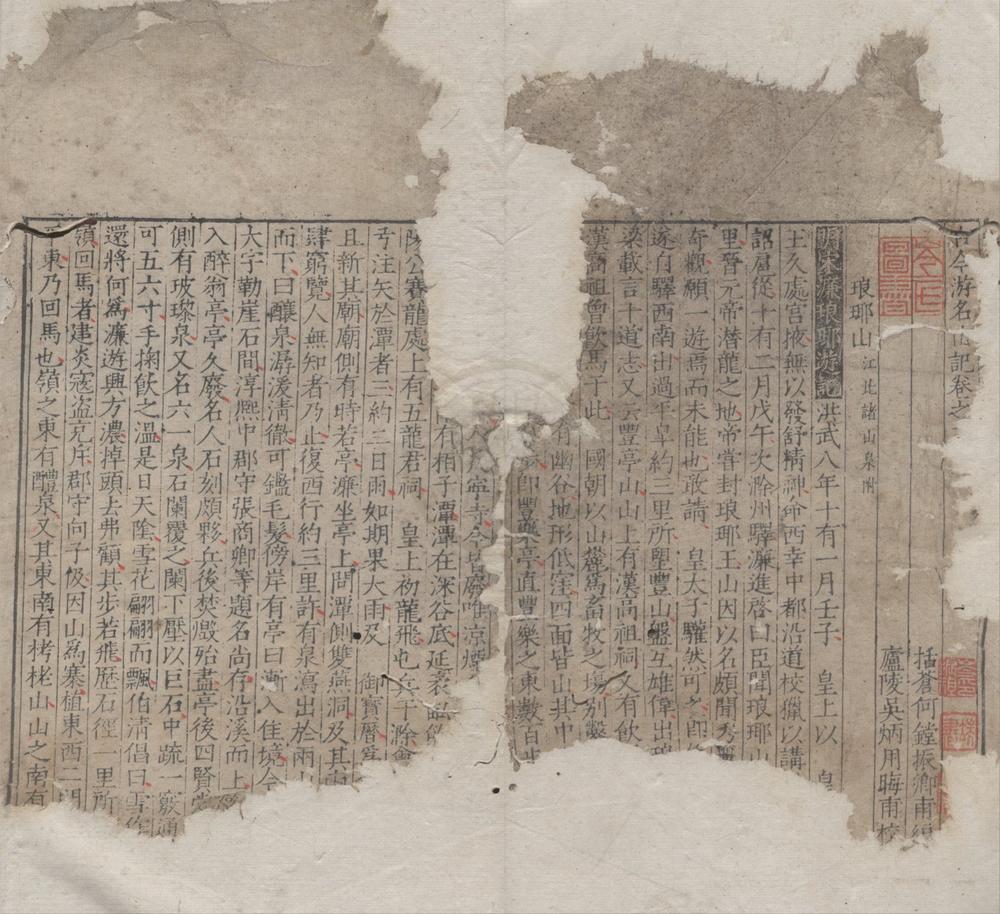 古今游名山記卷之
括蒼何鏜振卿甫編
廬陵吳炳用晦甫校
琅琊山 江北諸山泉附
明宋濂琅琊游記 洪武八年十有一月壬子 皇上以 皇
王久處宮掖無以發舒精神命西幸中都沿道校獵以講
詔臣從十有二月戊午次滁州驛濂進啓曰臣聞琅琊山
里晉元帝潛龍之地帝嘗封琅琊王山因以名頗聞秀麗
奇觀願一遊焉而未能也敢請 皇太子驩然可之即
遂自驛西南出過平皐約三里所望豐山盤互雄偉出
梁載言十道志又云豐亭山山上有漢高祖祠又有飲
漢高祖曾飲馬于此 國朝以山麓爲畜牧之場別鑿
有幽谷地形低窪四面皆山其中
即豐樂亭直豐樂之東數百步
寧寺今皆廢唯涼煙
有栢子潭潭在深谷底延袤
陽公賽龍處上有五龍君祠 皇上初龍飛屯兵于滁
弓注矢於潭者三約三日雨如期果大雨及 御寶曆
且新其廟廟側有時若亭濂坐亭上問潭側雙燕洞及其
肆窮覽人無知者乃止復西行約三里許有泉瀉出於兩
而下曰釀泉潺湲清徹可鑑毛髮傍岸有亭曰漸入佳境今
大字勒崖石間淳熙中郡守張商卿等題名尚存沿溪而上
入醉翁亭亭久廢名人石刻頗夥兵後焚燬殆盡亭後四賢堂
側有玻瓈泉又名六一泉石闌覆之闌下壓以巨石中疏一竅通
可五六寸手掬飲之溫是日天陰雪花翩翩而飄伯清倡曰雪作
還將何爲濂遊興方濃掉頭去弗顧其步若飛歷石徑一里所
嶺回馬者建炎寇盜充斥郡守向子伋因山爲寨植東西二門
東乃回馬也嶺之東有醴泉又其東南有栲栳山山之南有